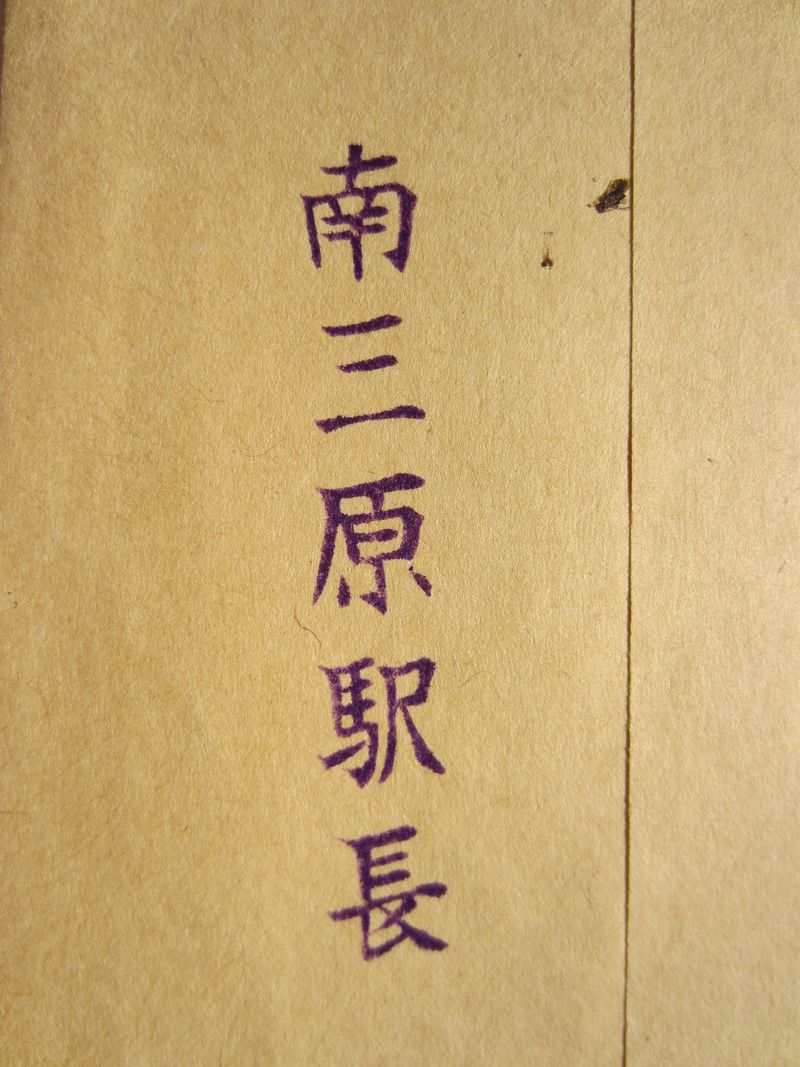 南三原駅長